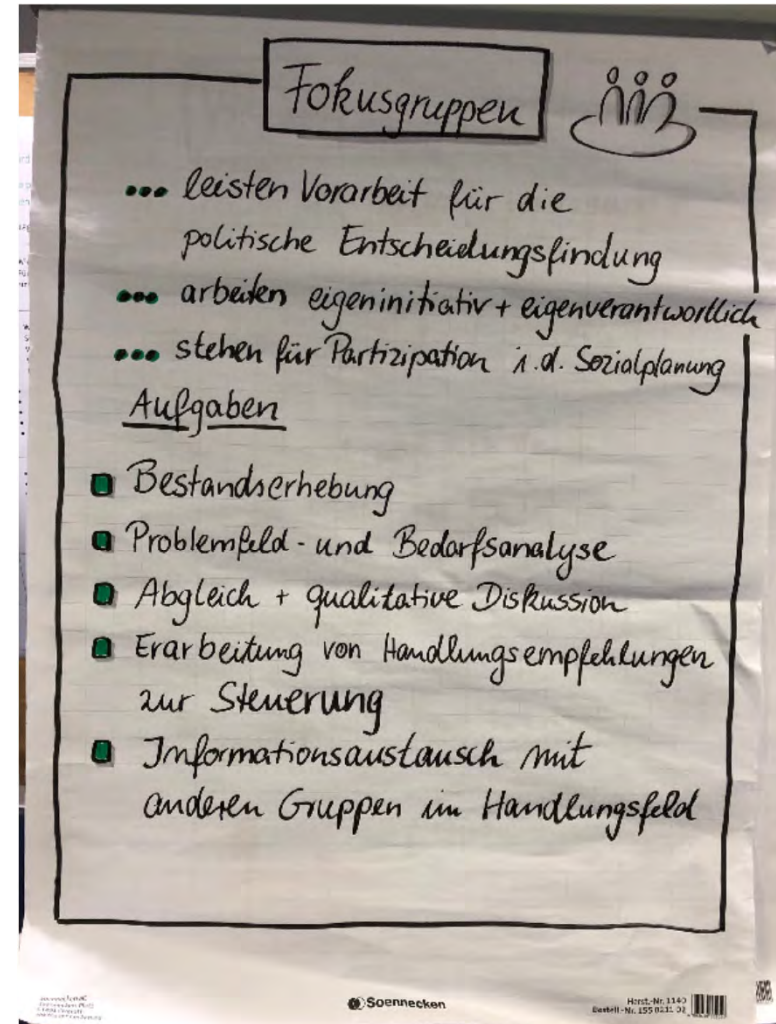 Fokusgruppen
... leisten Vorarbeit für die
politische Entscheidungsfindung
... arbeiten eigeninitiativ + eigenverantwortlich
... stehen für Partizipation i.d. Sozialplanung
Aufgaben
Bestandserhebung
Problemfeld- und Bedarfsanalyse
Abgleich + qualitative Diskussion
Erarbeitung von Handlungsempfehlungen
zur Steuerung
Informationsaustausch mit
anderen Gruppen im Handlungsfeld
Soennecken
Herst.-Nr. 1140
Bestell-Nr.